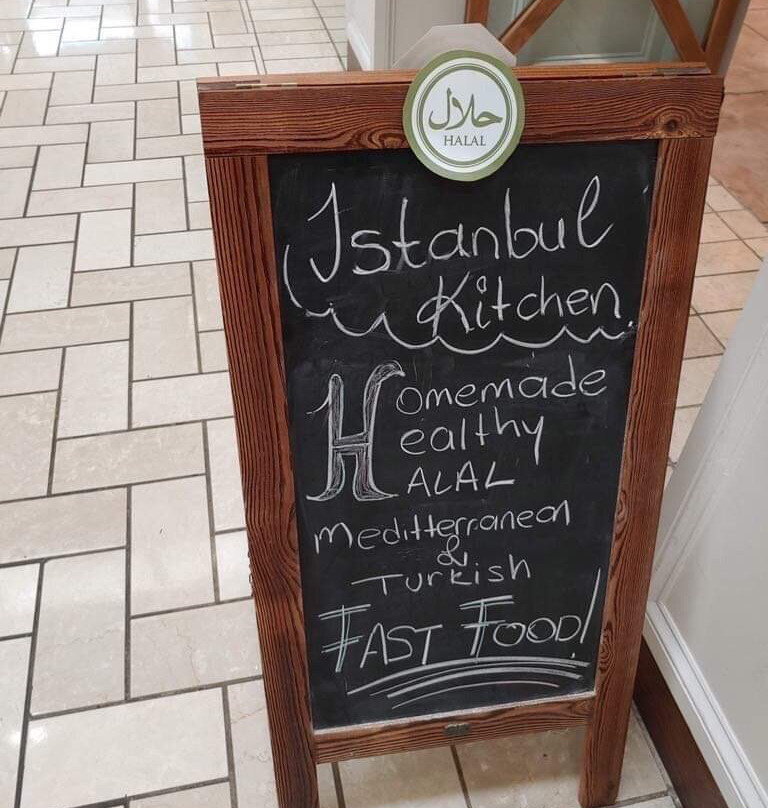 حلال
HALAL
Istanbul
Kitchen
Homemade
Healthy
HALAL
Meditterranean
&
Turkish
FAST FOOD!